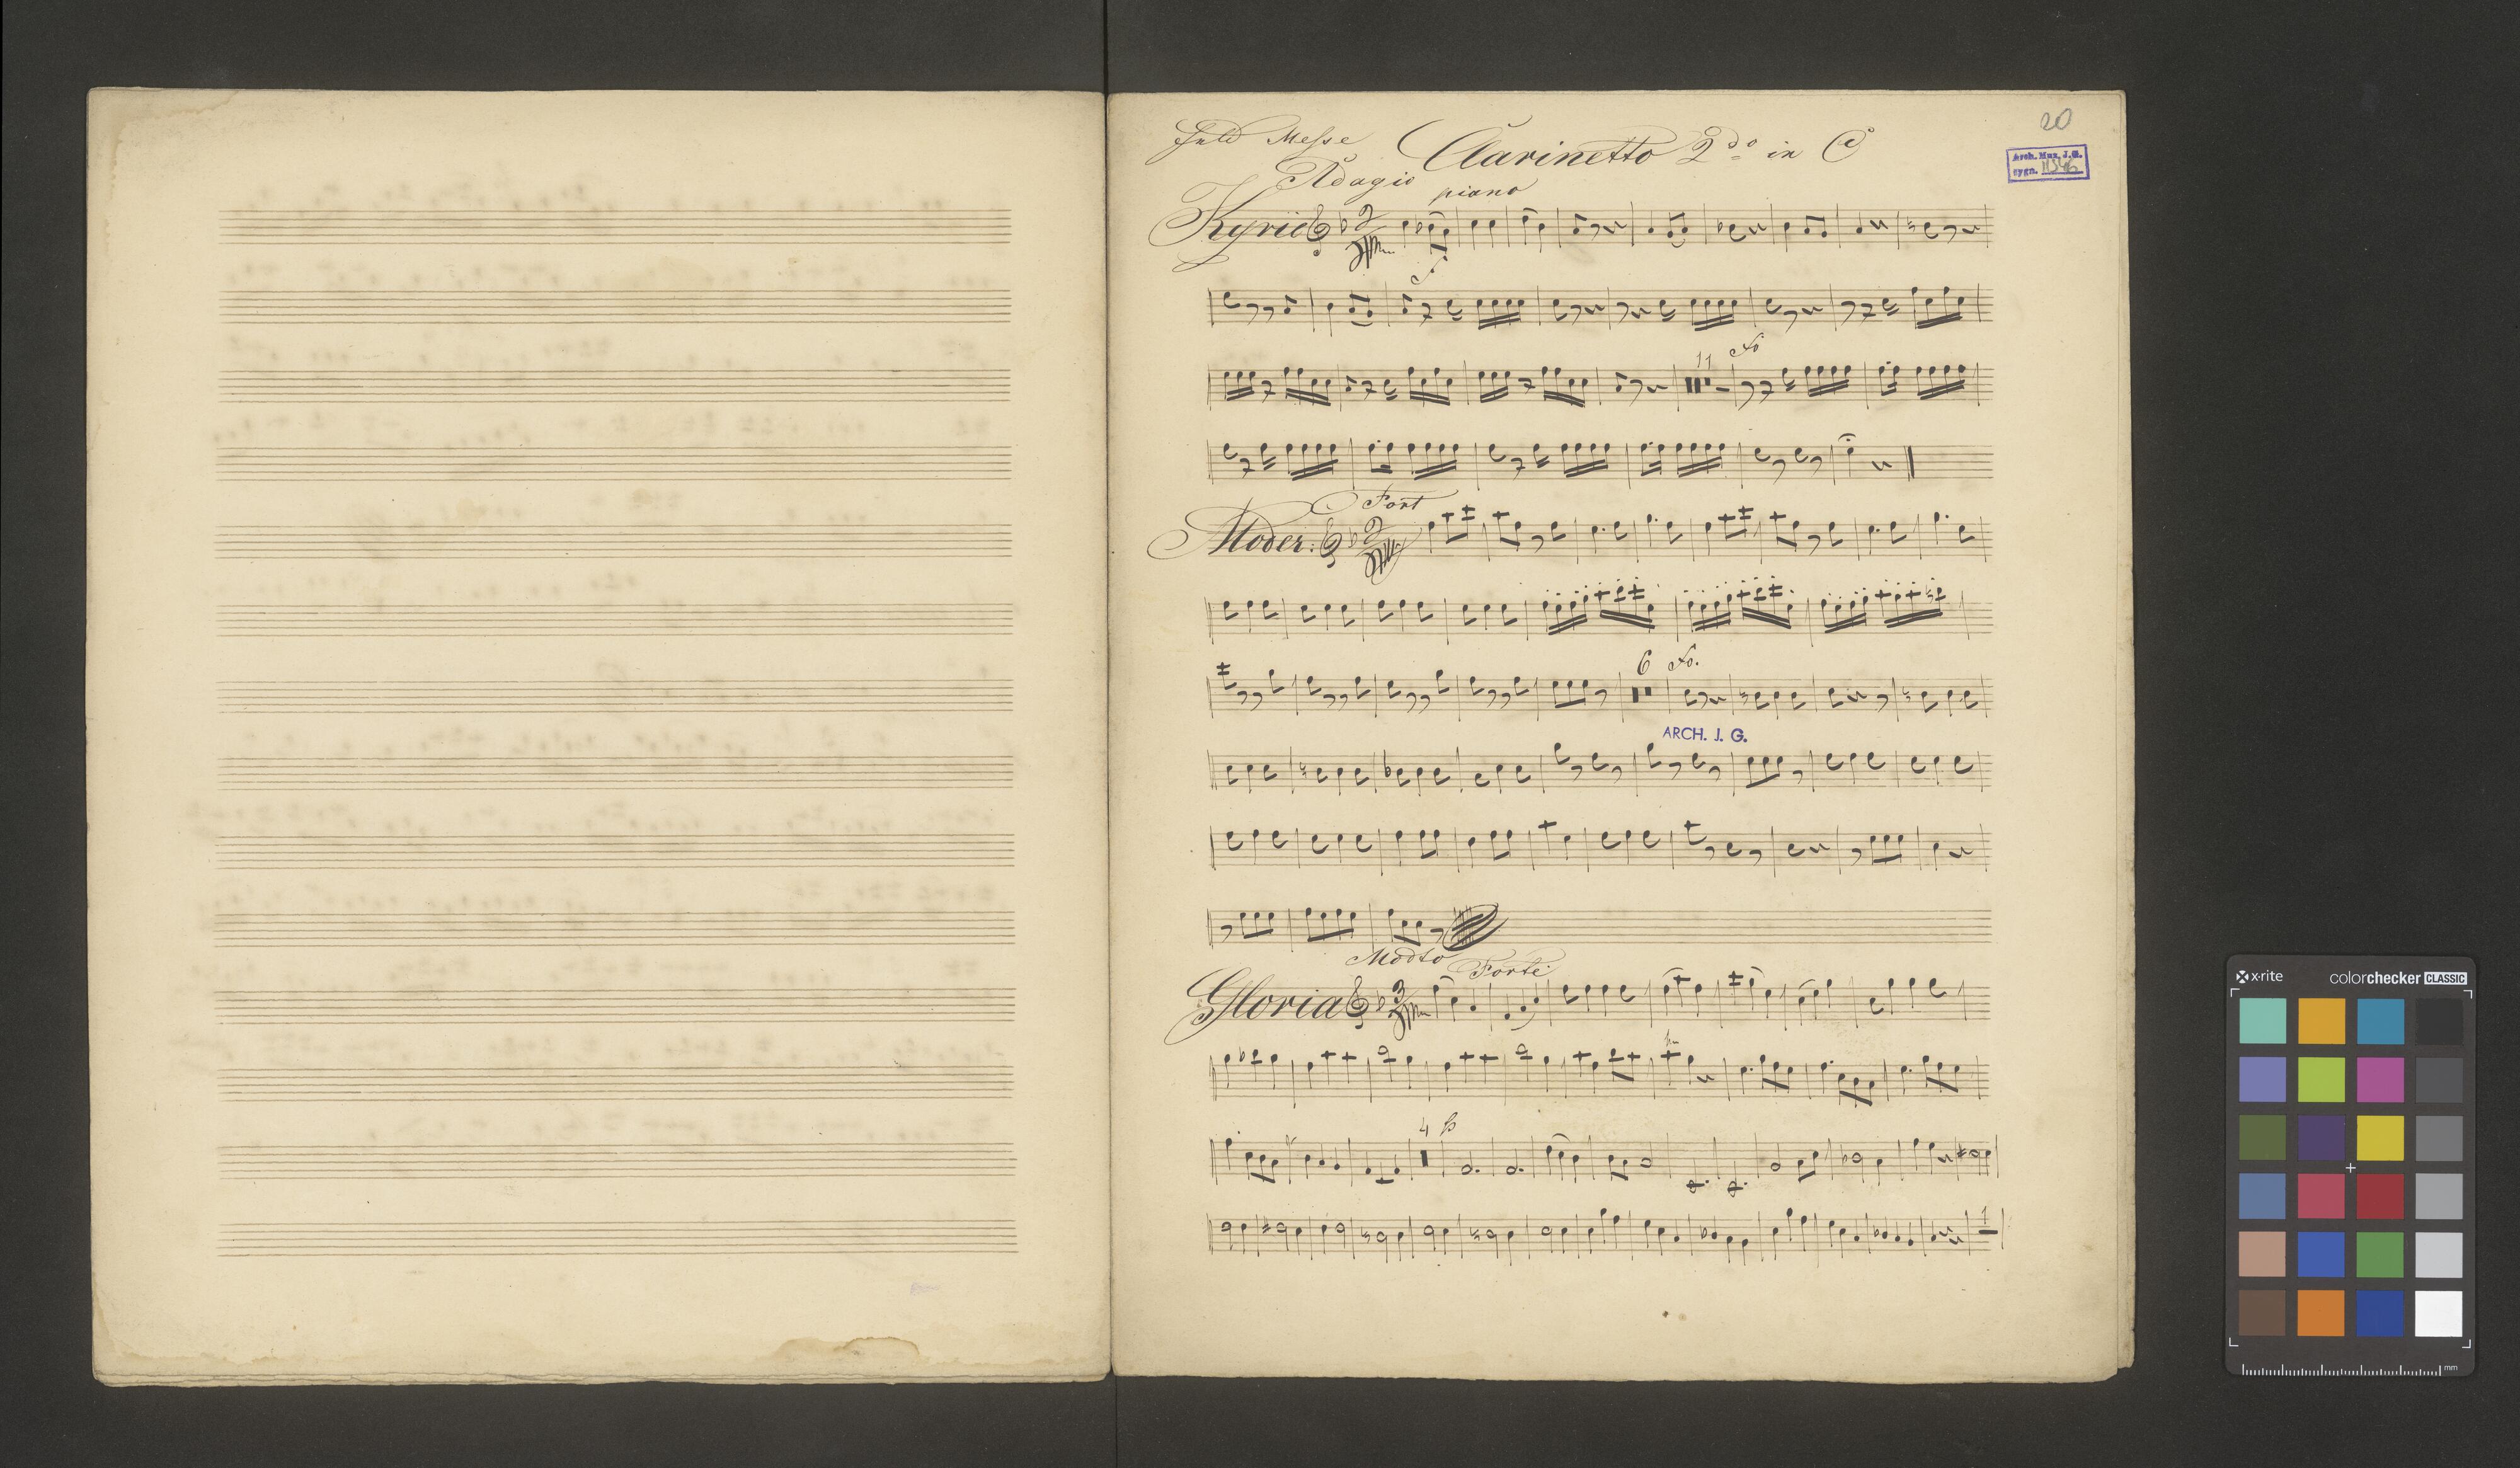 20
Messe Clarinetto 2do in C
Arch. Mus. J.G.
sygn.
Adagio piano
Kyrie
11 Fo
Fort
Moder:
6 Fo.
ARCH. J. G.
Modto Forte
Gloria 3
4 p
1
x-rite colorchecker CLASSIC
mm